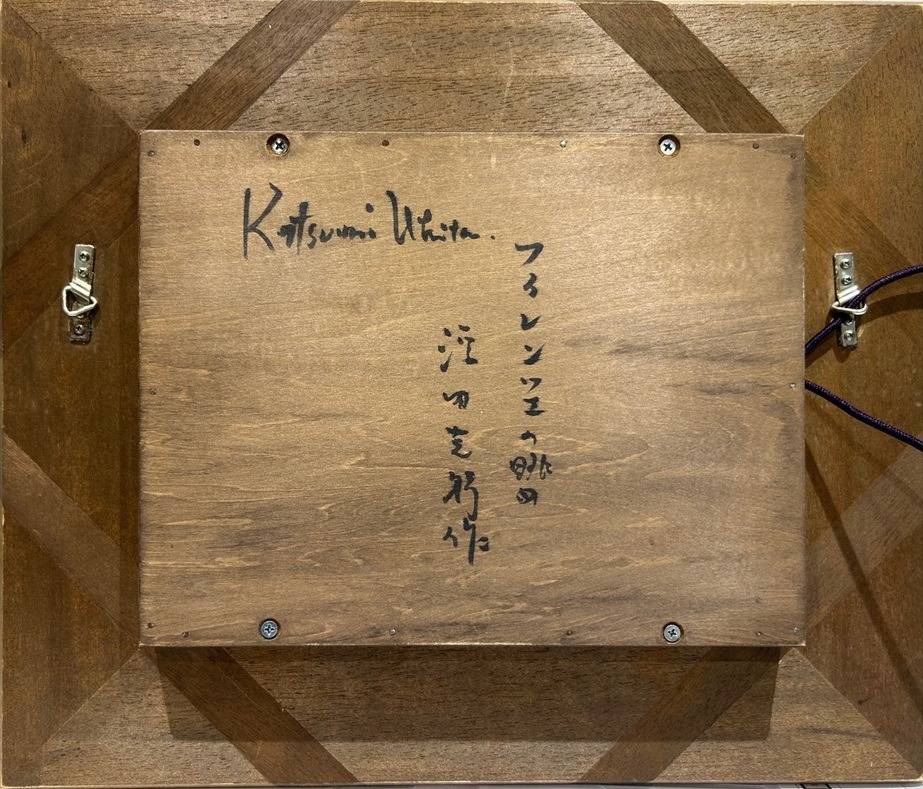 Katsumi Uhita.
フィレンツェの眺望
田克躬作